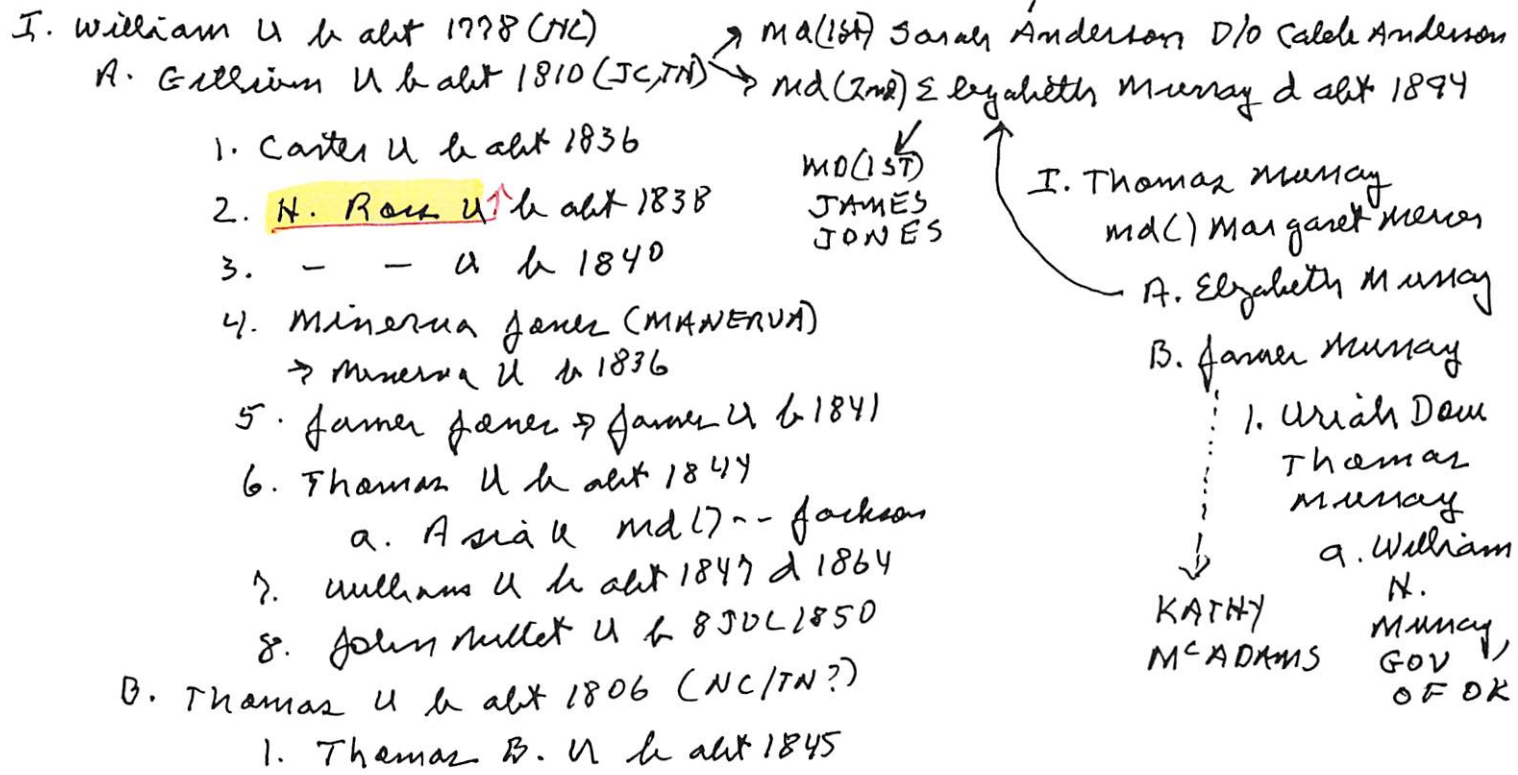 I. William U b abt 1778 (NC)
A. Gilliam U b abt 1810 (JC,TN)
md(1ST) Sarah Anderson D/o Caleb Anderson
md(2nd) Elizabeth Murray d abt 1894
1. Carter U b abt 1836
2. H. Ross U b abt 1838
3. - - U b 1840
4. Minerva Jones (MANERVA)
→ Minerva U b 1836
5. James Jones → James U b 1841
6. Thomas U b abt 1844
a. Asia U md() -- Jackson
7. William U b abt 1847 d 1864
8. John Mullet U b 8 JUL 1850
B. Thomas U b abt 1806 (NC/TN?)
1. Thomas B. U b abt 1845
MD(1ST)
JAMES
JONES
I. Thomas Murray
md() Margaret
A. Elizabeth Murray
B. James Murray
1. Uriah Dow
Thomas
Murray
a. William
H.
Murray,
GOV
OF OK
KATHY
McADAMS